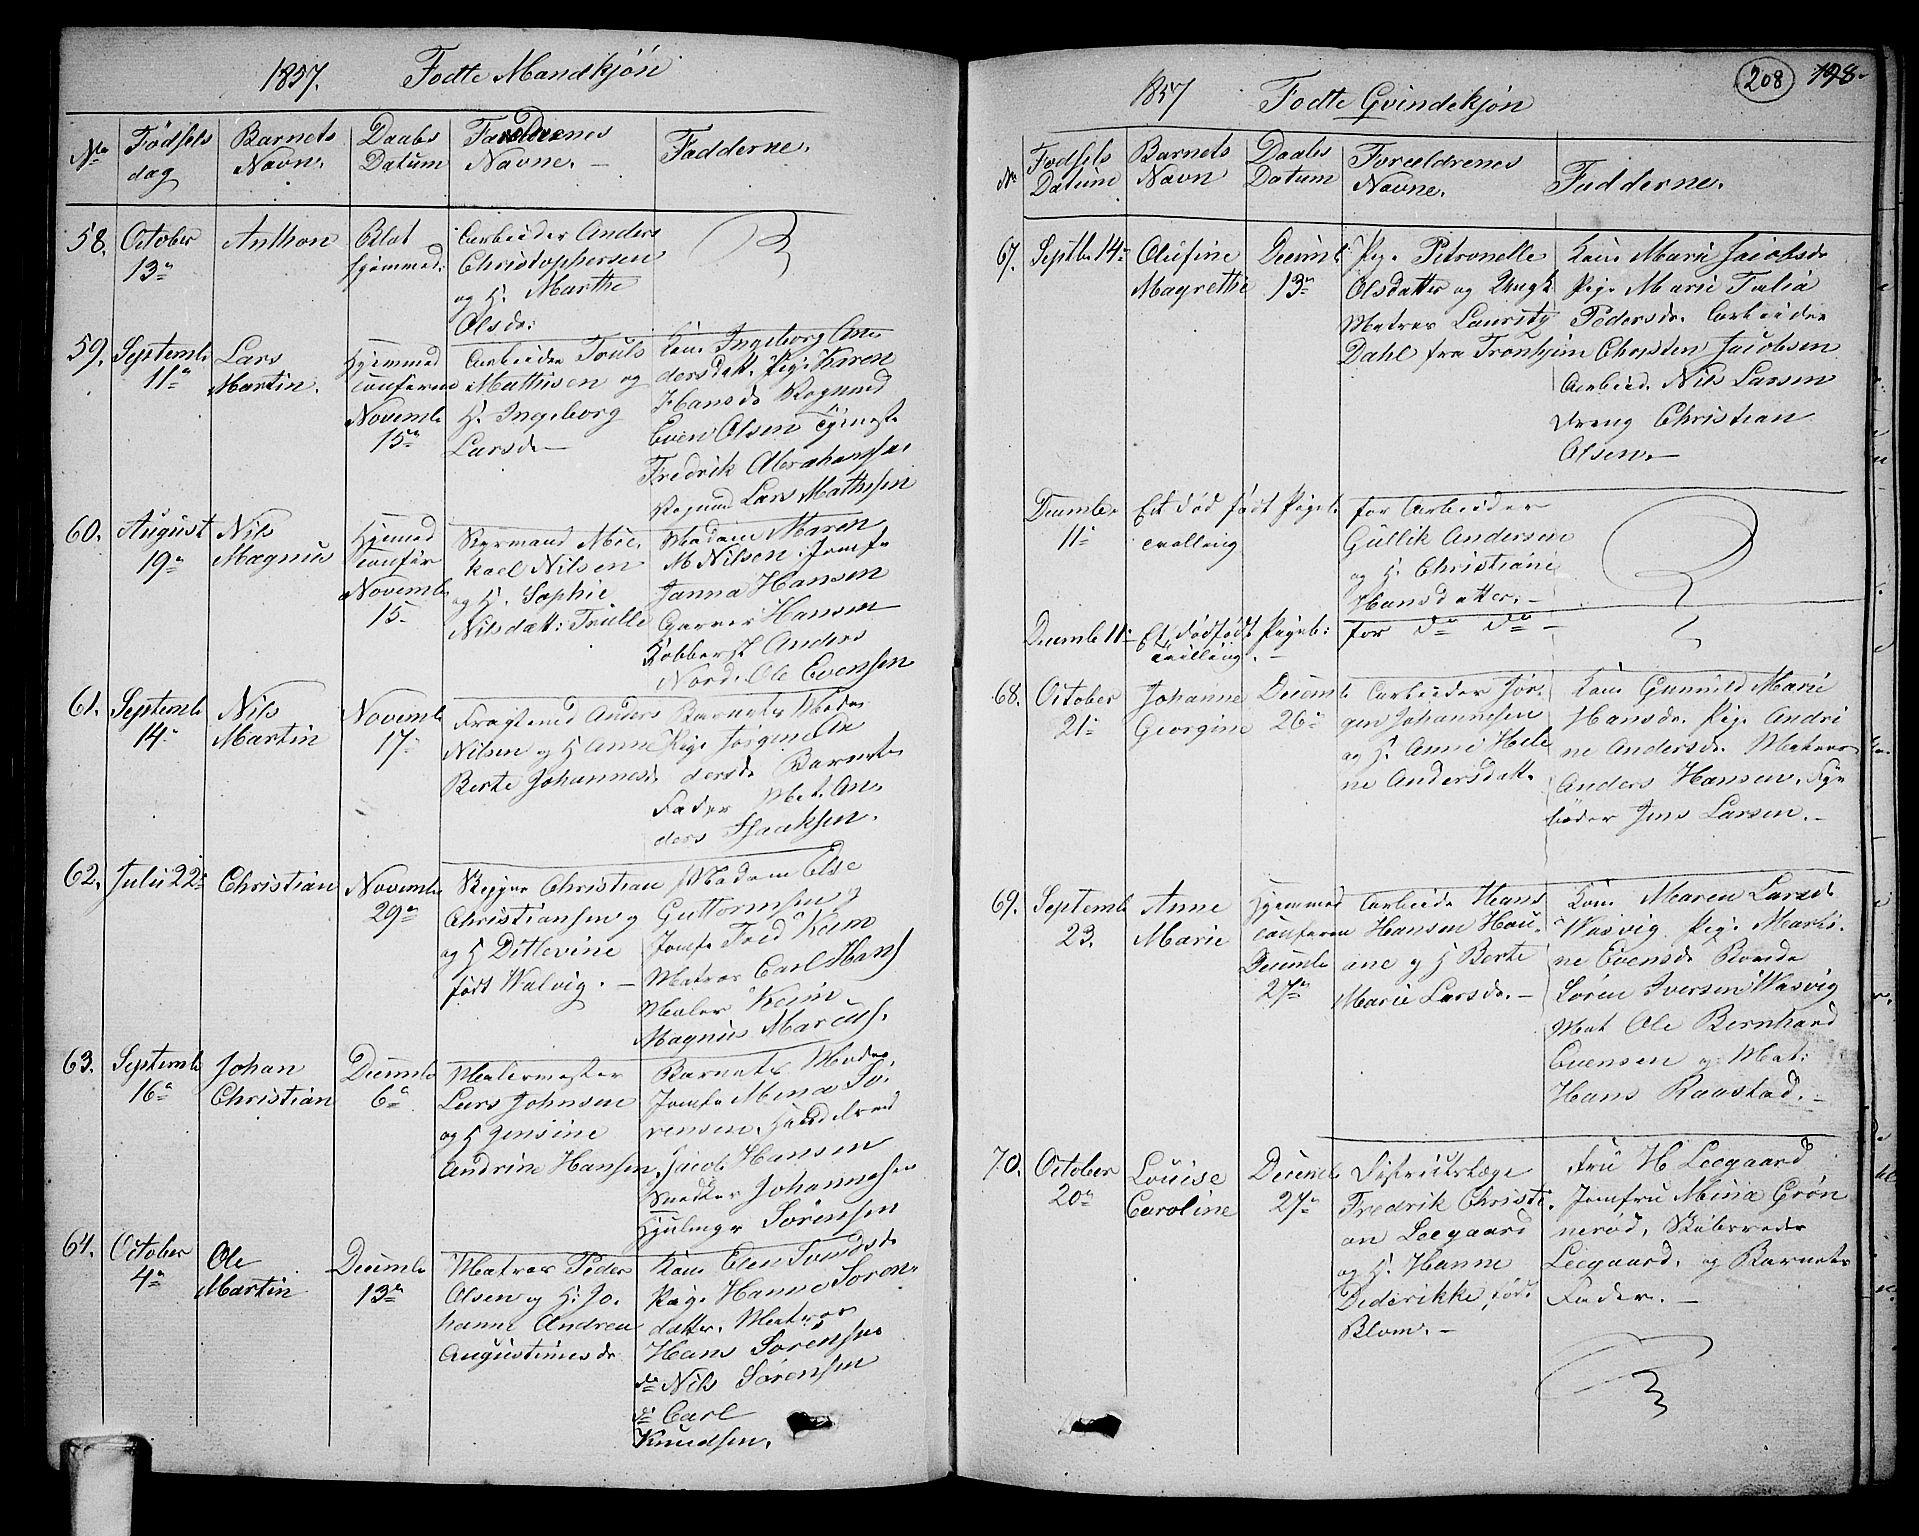 1857. Fødte Mandkjön
No Födsels dag Barnets Navn. Daabs Datum Forældrenes Navne. Fadderne.
58. October 13de Anthon Blot hjemmed:
Arbeider Anders
Christophersen
og H. Marthe
Olsdr:
59. Septembr 11te Lars Martin. Hjemmed confirm Novembr 15de
Arbeider Truls
Mathisen og
H. Ingeborg
Larsdr
Kone Ingeborg An
dersdatt. Pige Karen
Hansdr
Even Olsen
Fredrik Abrahamsen
Lars Mathisen
60. August 19de Nils Magnus Hjemmed confir Novembr 15.
Styrmand Mic
kael Nilsen
og H. Sophie
Nilsdatt: Trulle
Madam Maren
M Nilsen. Jomfr
Janna Hansen
Garver Hansen
Kobberst Anders
Nord. Ole Evensen
61. Septembr 14de Nils Martin Novembr 17de
Fragtemd Anders
Nilsen og H Anne
Berte Johannesd
Barnets Moder
Pige Jorgine An
dersdr Barnets
Fader Mat. An
ders Isaaksen.
62. Juli 22de Christian Novembr 29de
Christian
Christiansen
og H Ditlevine
født Walvig.
Madam Else
Guttormsen
Jomfr Fred Keim
Matros Carl Hans
Maler Keim
Magnus Marcus.
63. Septembr 16de Johan Christian Decembr 6te
Malermester
Lars Johnsen
og H Jensine
Andrine Hansen
Barnets Moder,
Jomfr Mena So
rensen, Handelsmd
Jacob Hansen
Snedker Johannesen
Hjulmgr Sörensen
64. October 4de Ole Martin Decembr 13de
Matros Peder
Olsen og H. Jo
hanne Andrea
Augustinusdr
Kone Elen Svendsdr
Pige Hanne Soren
datter. Matros
Hans Sörensen
do Nils Sörensen
do Carl
Knudsen.
208 198.
1857 Fødte Qvindekjøn
No Fødsels Datum Barnets Navn Daabs Datum Forældrenes Navne. Fadderne.
67. Septbr 14de Olufine Magrethe Decembr 13de
Pige Petronelle
Olsdatter og Ungk
Matros Lauritz
Dahl fra Tronhjem
Kone Marie Jacobsdr
Pige Marie Talia
Pedersdr. Arbeider
Christen Jacobsen
Arbeid. Nils Larsen
Dreng Christian
Olsen.
Decembr 11te Et død født Pigeb. tvilling
for Arbeider
Gullik Andersen
og H. Christiane
Hansdatter.
Decembr 11te Et dødfødt Pigeb: tvilling.
for do do
68. October 21de Johanne Georgine Decembr 26de
Arbeider Jör
gen Johannesen
og H. Anne Hele
ne Andersdatt.
Kone Gunnild Marie
Hansdr. Pige Andri
ne Andersdr. Matros
Anders Hansen. Fyr
bøder Jens Larsen.
69. Septembr 23. Anne Marie Hjemmed confirm Decembr 27de
Arbeider Hans
Hansen Hau
ane og H Berte
Marie Larsdr.
Kone Maren Larsdr
Wasvig Pige Marti
ne Evensdr Bonde
Sören Iversen Wasvig
Mat Ole Bernhard
Evensen og Mat:
Hans Raastad.
70. October 20de Louise Caroline Decembr 27de
Districtslæge
Fredrik Christi
an Leegaard
og H. Hanne
Dederikke, fød.
Blom.
Fru H Leegaard
Jomfru Mina Grøn
nerød, Skibsreder
Leegaard. og Barnets
Fader.